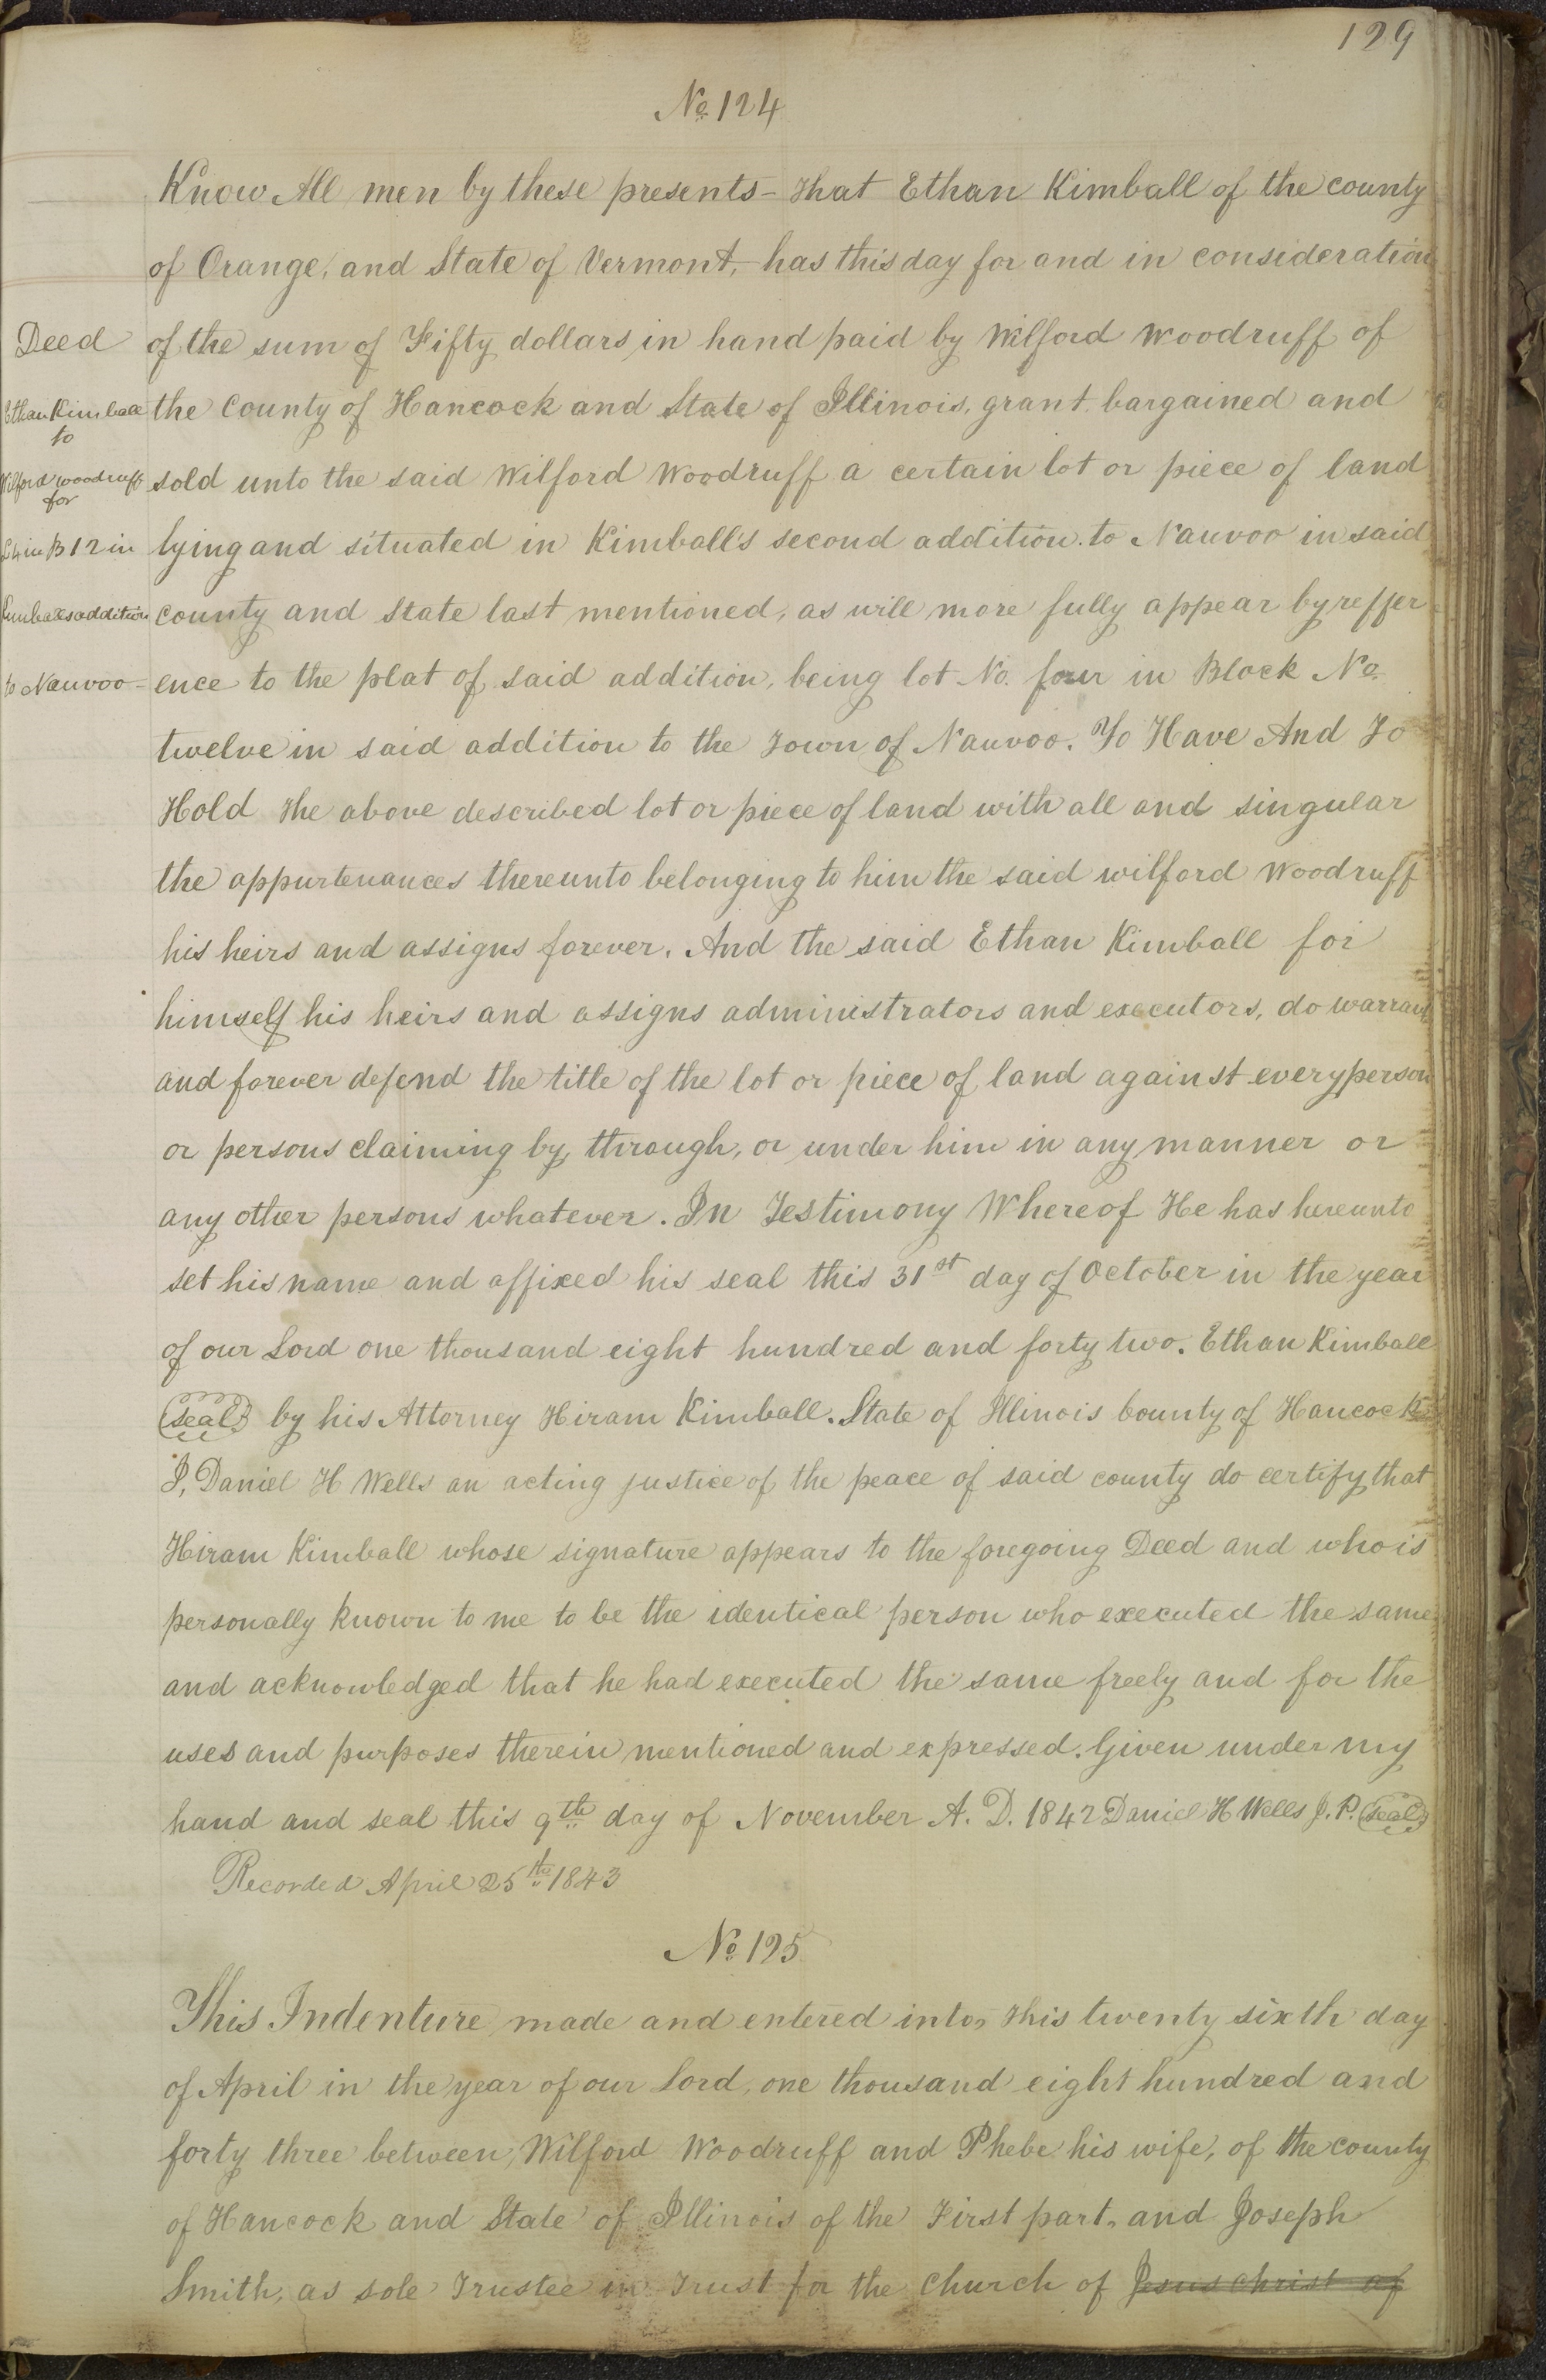 129
No 124
Know All men by these presents - that Ethan Kimball of the county
of Orange, and State of Vermont, has this day for and in consideration
Deed
of the sum of Fifty dollars in hand paid by Wilford Woodruff of
Ethan Kimball
to
the County of Hancock and State of Illinois, grant. bargained and
Wilford woodruff
for
sold unto the said Wilford Woodruff a certain lot or piece of land
L 4 in B 12 in
lying and situated in Kimball's second addition. to Nauvoo in said
Kimballs addition
county and State last mentioned, as will more fully appear by reffer
to Nauvoo -
ence to the plat of said addition, being lot No. four in Block No.
twelve in said addition to the Town of Nauvoo. To Have And To
Hold the above described lot or piece of land with all and singular
the appurtenances thereunto belonging to him the said wilford Woodruff
his heirs and assigns forever. And the said Ethan Kimball for
himself his heirs and assigns administrators and executors, do warrant
and forever defend the title of the lot or piece of land against every person
or persons claiming by, through, or under him in any manner or
any other persons whatever. In Testimony Whereof He has hereunto
set his name and affixed his seal this 31st day of October in the year
of our Lord one thousand eight hundred and forty two. Ethan Kimball
(seal) by his Attorney Hiram Kimball. State of Illinois County of Hancock
I, Daniel H Wells an acting justice of the peace of said county do certify that
Hiram Kimball whose signature appears to the foregoing Deed and who is
personally known to me to be the identical person who executed the same
and acknowledged that he had executed the same freely and for the
uses and purposes therein mentioned and expressed. Given under my
hand and seal this 9th day of November A. D. 1842 Daniel H Wells J. P. (seal)
Recorded April 25th 1843
No 125
This Indenture made and entered into, this twenty sixth day
of April in the year of our Lord, one thousand eight hundred and
forty three between, Wilford Woodruff and Phebe his wife, of the county
of Hancock and State of Illinois of the First part, and Joseph
Smith, as sole Trustee in Trust for the church of Jesus christ of